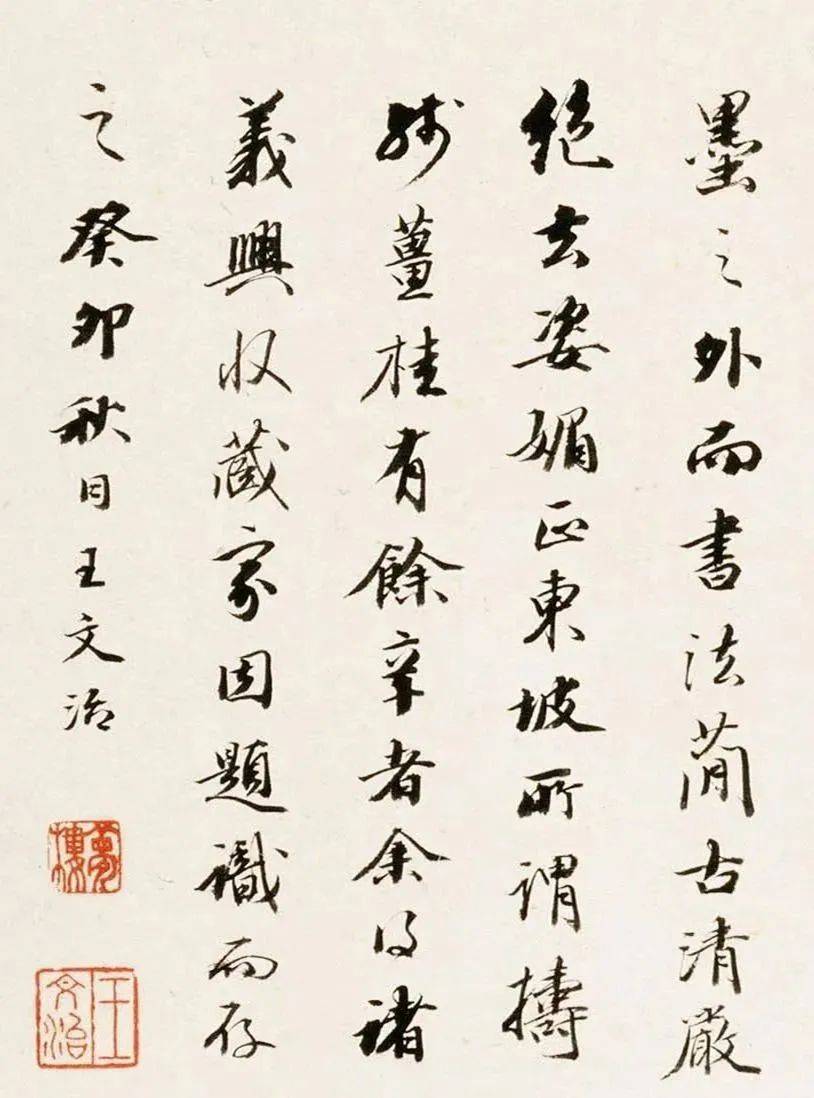 墨之外而書法簡古清嚴
絕去姿媚正東坡所謂擣
殘薑桂有餘辛者余得諸
義興收藏家因題識而存
之癸卯秋日王文治
夢樓
王文治